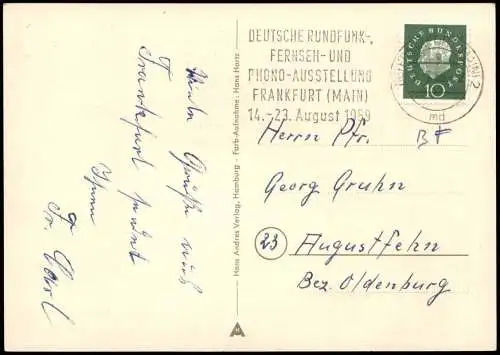 DEUTSCHE RUNDFUNK-,
FERNSEH-UND
PHONO-AUSSTELLUNG
FRANKFURT (MAIN)
14.-23. August 1959
DEUTSCHE BUNDESPOST
10
md
Herrn Pfr.
Georg Gruhn
23
Augustfehn
Bez. Oldenburg
Hans Andres Verlag, Hamburg - Farb-Aufnahme: Hans Hartz
Grüße aus
Frankfurt sendet
Ihnen
Fr. Carl